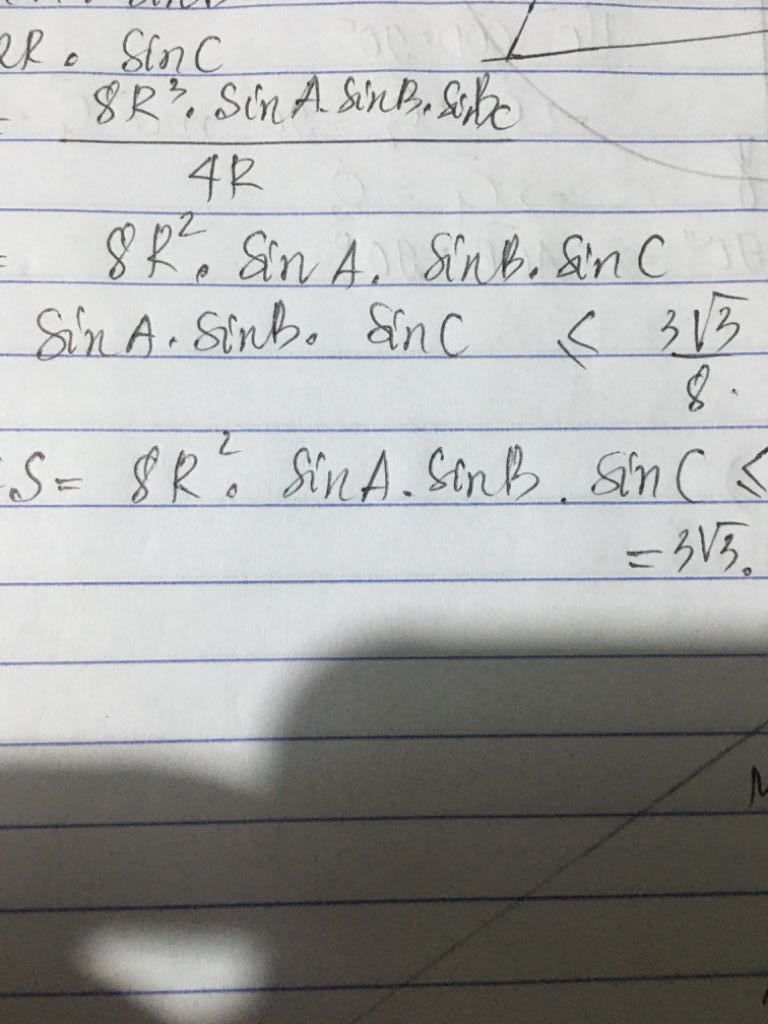 2R . Sin C
8R³. Sin A. Sin B. Sin C
4R
= 8R². Sin A. Sin B. Sin C
Sin A. Sin B. Sin C ≤ 3√3
8.
S= 8R². Sin A. Sin B. Sin C ≤
= 3√3.